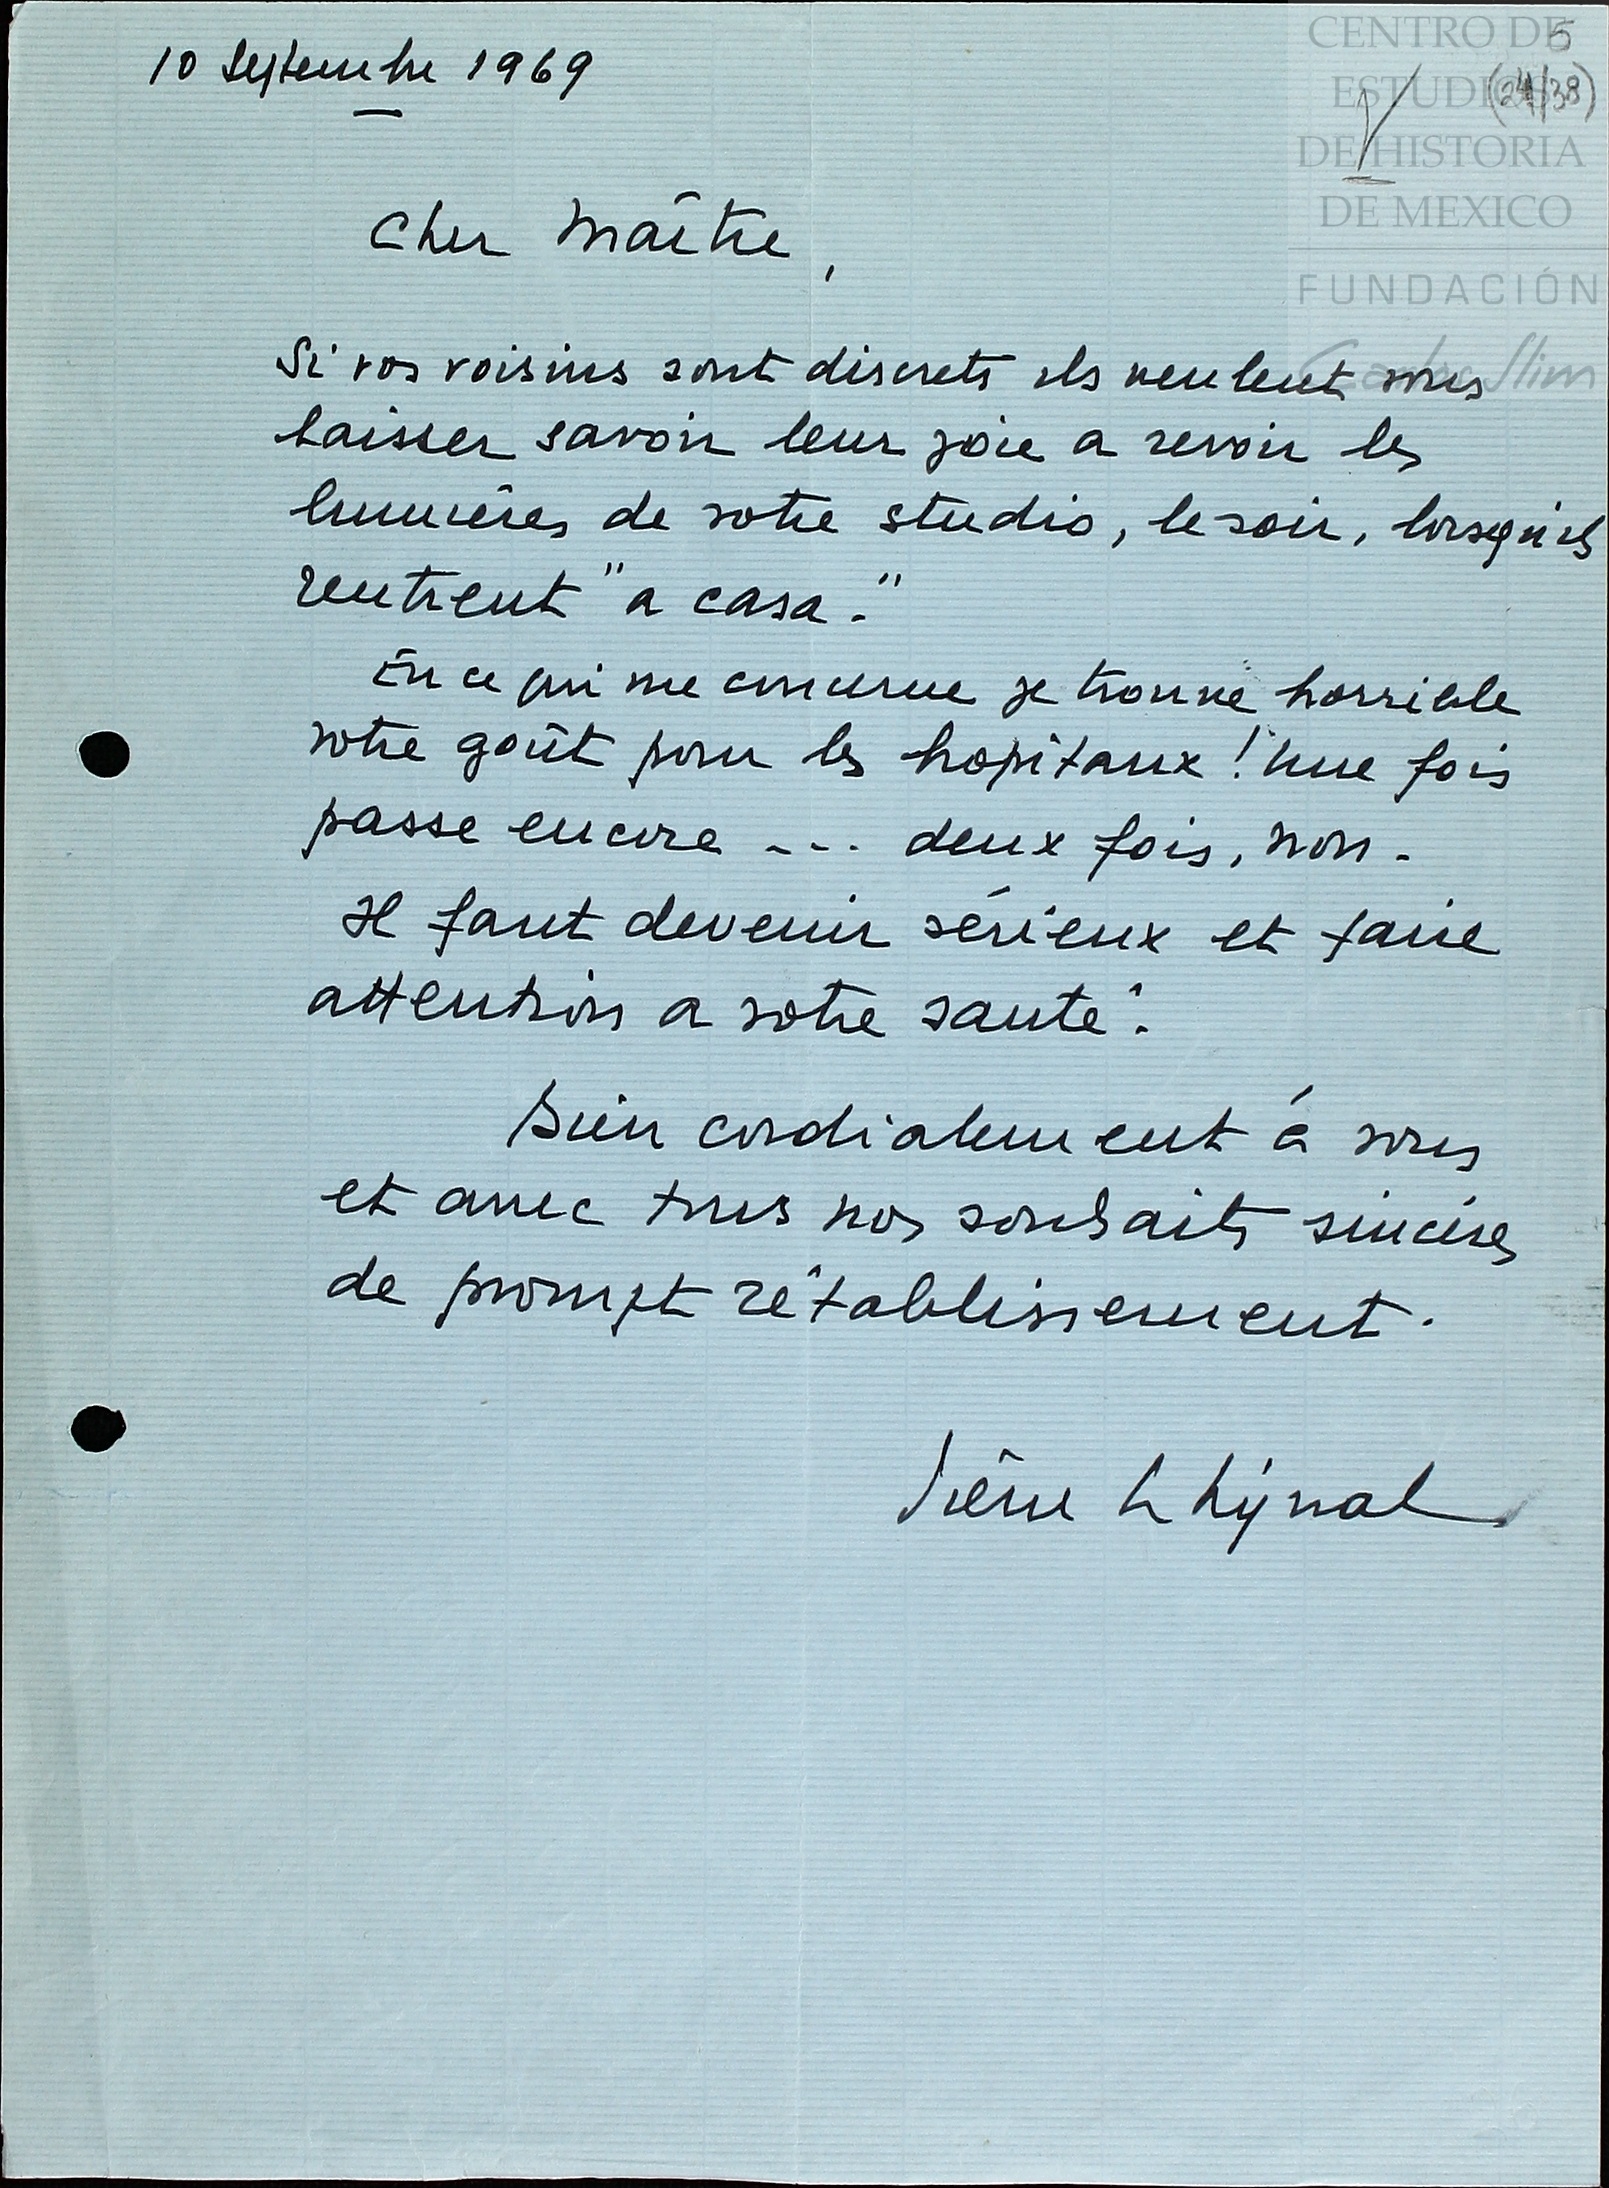 CENTRO DE
ESTUDIOS
DE HISTORIA
DE MEXICO
FUNDACIÓN
Carlos Slim
5
(24/38)
10 Septembre 1969
Cher Maître,
Si vos voisins sont discrets ils veulent vous
laisser savoir leur joie a revoir les
lumières de votre studio, le soir, lorsqu'ils
rentrent "a casa."
En ce qui me concerne je trouve horrible
votre goût pour les hopitaux ! Une fois
passe encore --- deux fois, non.
Il faut devenir sérieux et faire
attention a votre santé.
Bien cordialement à vous
et avec tous nos souhaits sincères
de prompt rétablissement.